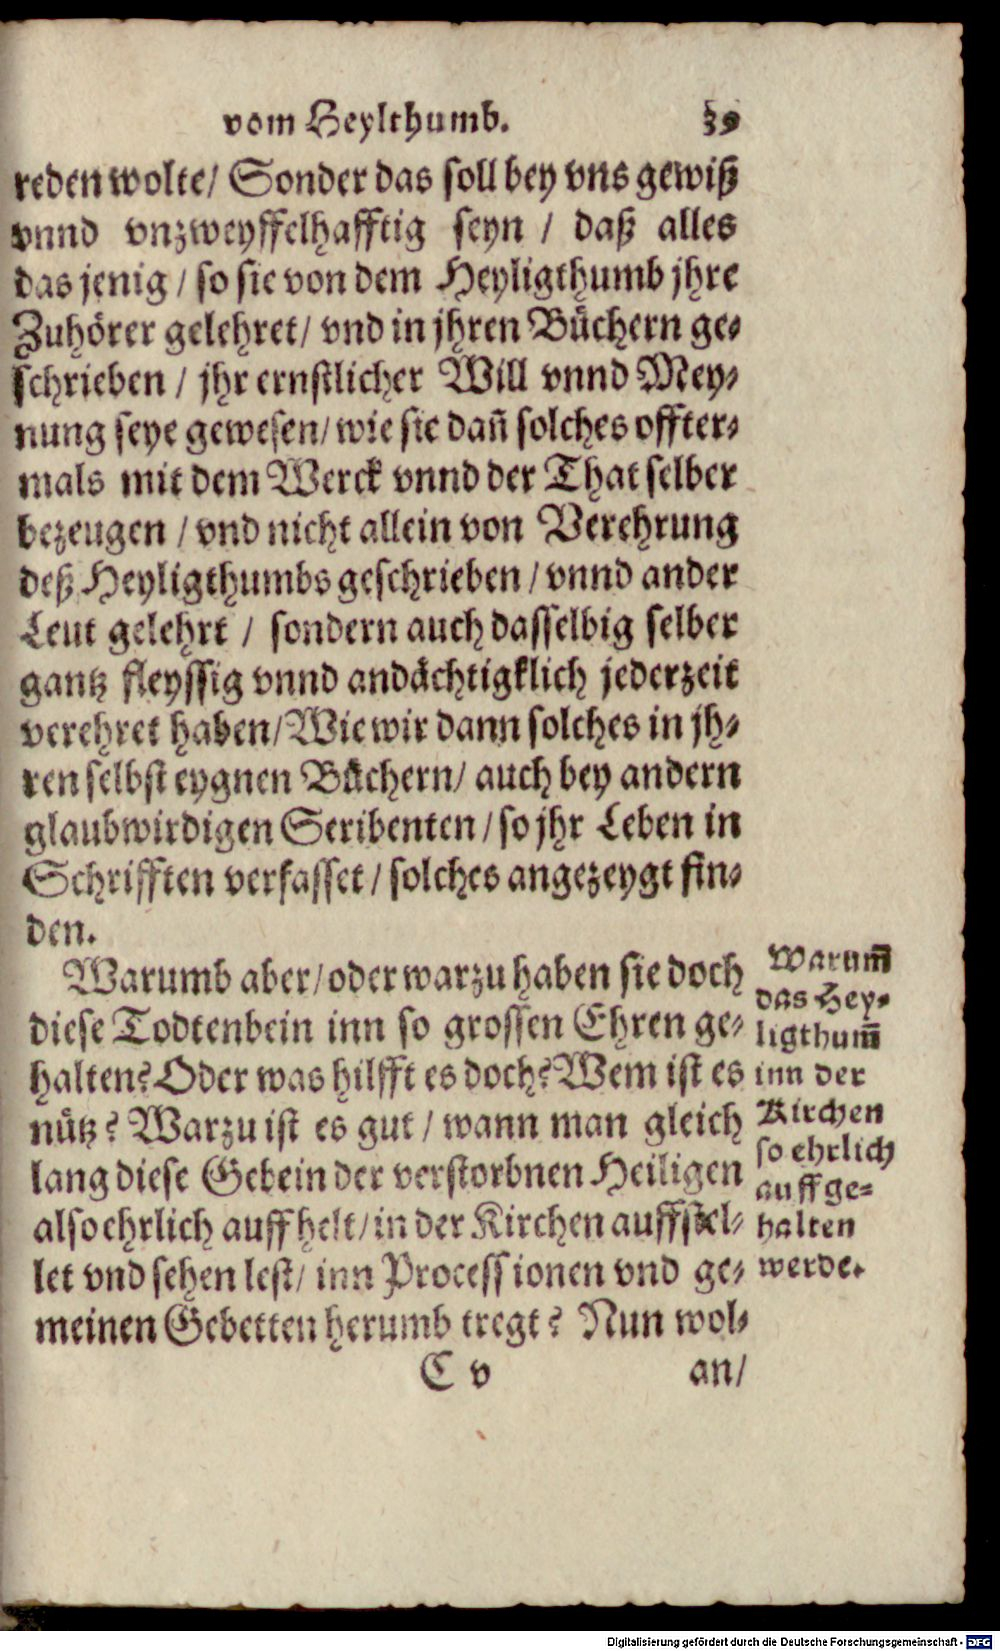 vom Heylthumb. 39
reden wolte/ Sonder das soll bey vns gewiß
vnnd vnzweyffelhafftig seyn / daß alles
das jenig / so sie von dem Heyligthumb jhre
Zuhörer gelehret/ vnd in jhren Büchern ge-
schrieben / jhr ernstlicher Will vnnd Mey-
nung seye gewesen/ wie sie dañ solches offter-
mals mit dem Werck vnnd der That selber
bezeugen / vnd nicht allein von Verehrung
deß Heyligthumbs geschrieben / vnnd ander
Leut gelehrt / sondern auch dasselbig selber
gantz fleyssig vnnd andächtigklich jederzeit
verehret haben/ Wie wir dann solches in jh-
ren selbst eygnen Büchern/ auch bey andern
glaubwirdigen Scribenten / so jhr Leben in
Schrifften verfasset / solches angezeygt fin-
den.
Warumb aber/ oder warzu haben sie doch
diese Todtenbein inn so grossen Ehren ge-
halten? Oder was hilfft es doch? Wem ist es
nütz? Warzu ist es gut / wann man gleich
lang diese Gebein der verstorbnen Heiligen
also ehrlich auff helt/ in der Kirchen auffstel-
let vnd sehen lest/ inn Processionen vnd ge-
meinen Gebetten herumb tregt? Nun wol-
C v an/
Warum̃
das Hey-
ligthum̃
inn der
Kirchen
so ehrlich
auff ge-
halten
werde.
Digitalisierung gefördert durch die Deutsche Forschungsgemeinschaft - DFG